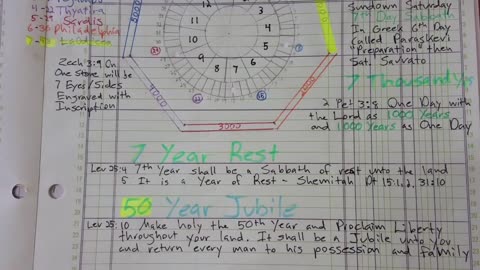 4-29 Thyatira
5-29 Sardis
6-30 Philadelphia
Laodicea
Zech 3:9 On
One Stone will be
7 Eyes/Sides
Engraved with
Inscription
12
1
11
2
10
3
9
4
8
7
6
5
3000
Sundown Saturday
7th Day Sabbath
In Greek 6th Day
Called Paraskevi
"Preparation" then
Sat. Savvato
7 Thousand Yrs
2 Pet 3:8 One Day with
the Lord as 1000 Years
and 1000 Years as One Day
7 Year Rest
Lev 25:4 7th Year shall be a Sabbath of rest unto the land
5 It is a Year of Rest - Shemitah Dt 15:1,2, 31:10
50 Year Jubile
Lev 25:10 Make holy the 50th Year and Proclaim Liberty
throughout your land. It shall be a Jubile unto you
and return every man to his possession and family